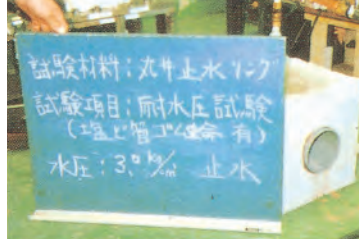 試験材料：カサ止水リング
試験項目：耐水圧試験
（塩ビ管ゴム輪 有）
水圧：3.0㎏/㎠ 止水